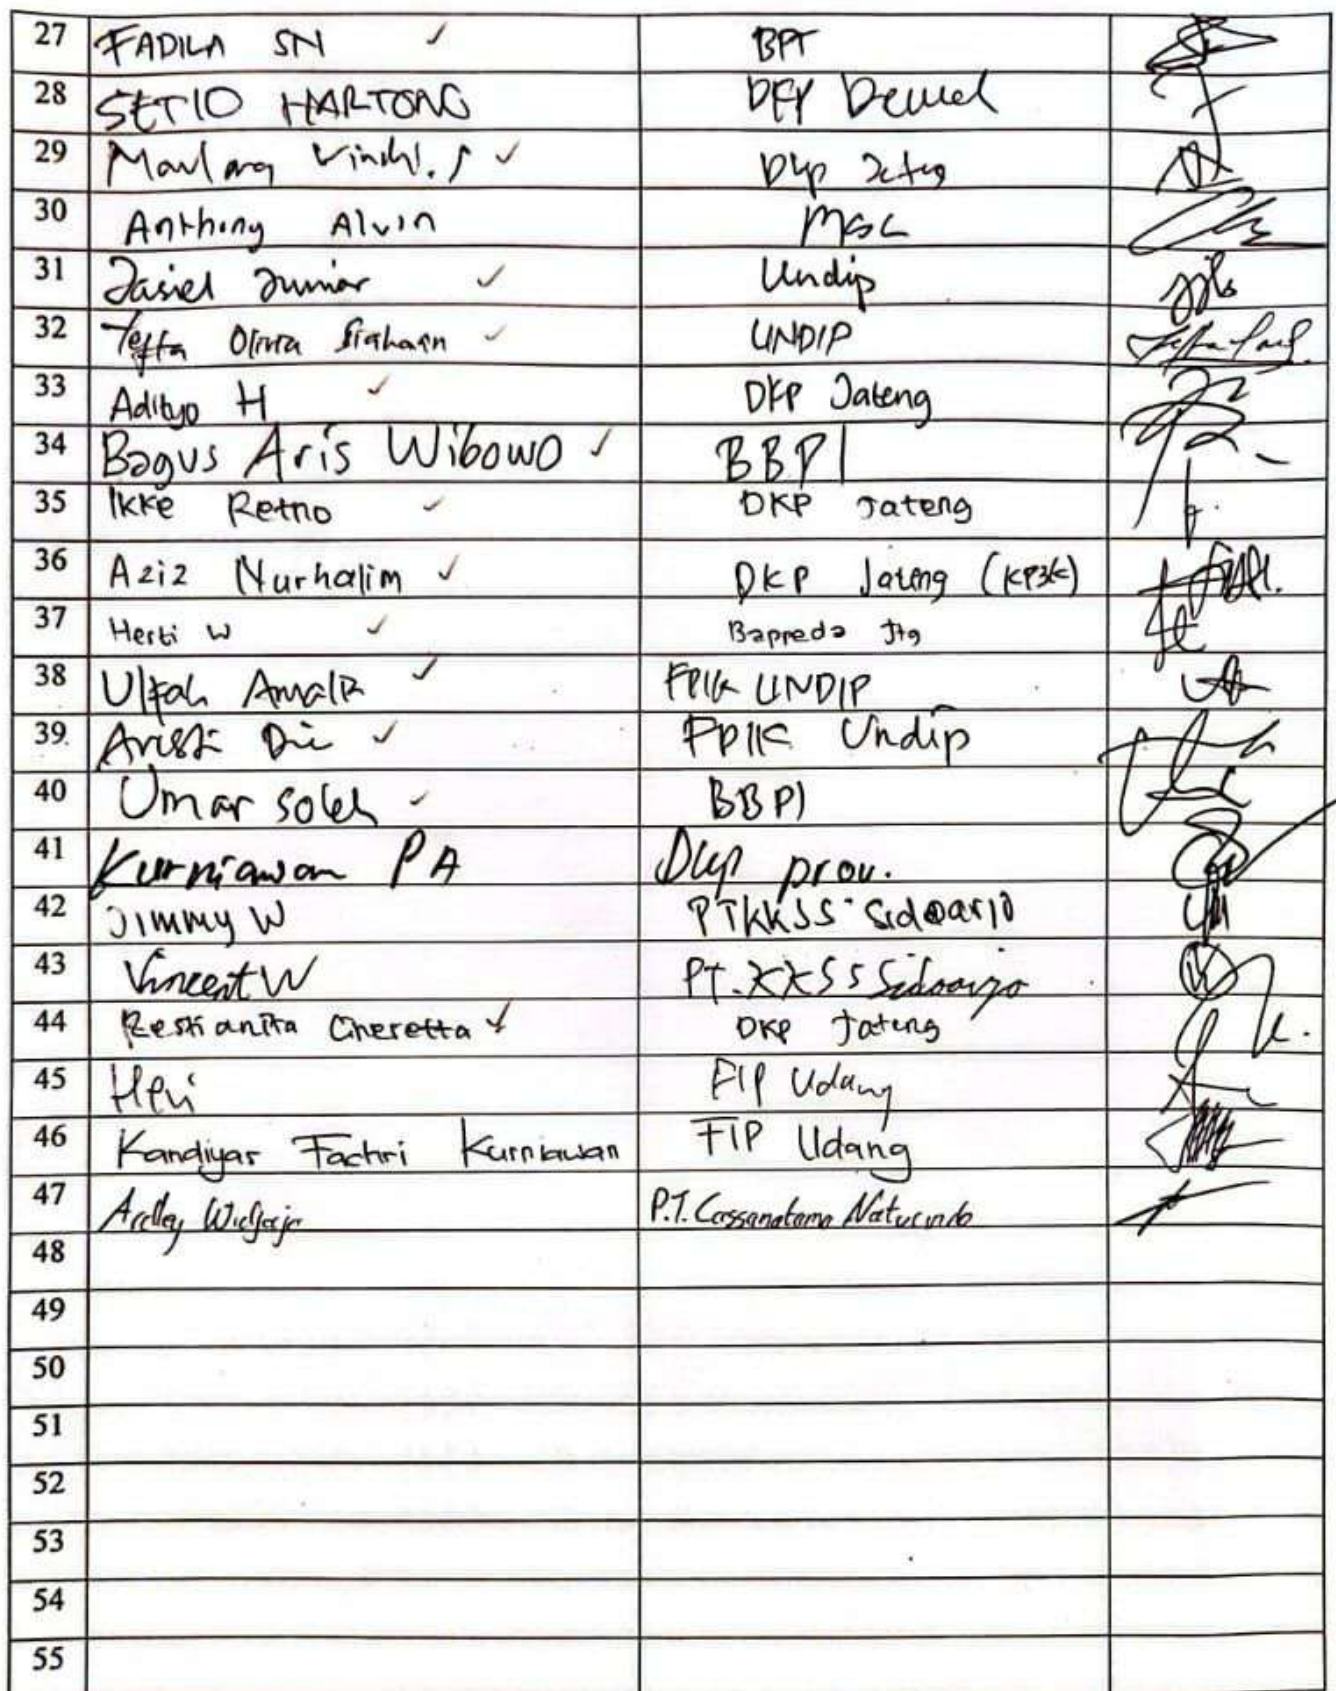 27 FADILA SN ✓ BPT
28 SETIO HARTONO DKP Demak
29 Maulana ✓ Dkp Jateng
30 Anthony Alvin MSC
31 Jasiel Junior ✓ Undip
32 Yefta Olivia Siahaan ✓ UNDIP
33 Adityo H ✓ DKP Jateng
34 Bagus Aris Wibowo ✓ BBPI
35 Ikke Retno ✓ DKP Jateng
36 Aziz Nurhalim ✓ DKP Jateng (KP3K)
37 Herti W ✓ Bappeda Jtg
38 Ulfah Amalia ✓ FPIK UNDIP
39. Aristi Dian ✓ FPIK Undip
40 Umar Soleh ✓ BBPI
41 Kurniawan PA Dkp prov.
42 Jimmy W PT KKSS Sidoarjo
43 Vincent W PT. KKSS Sidoarjo
44 Reskianita Cheretta ✓ DKP Jateng
45 Heri FIP Udang
46 Kandiyar Fachri Kurniawan FIP Udang
47 Ardley Widjaja P.T. Cassanatama Naturindo
48
49
50
51
52
53
54
55